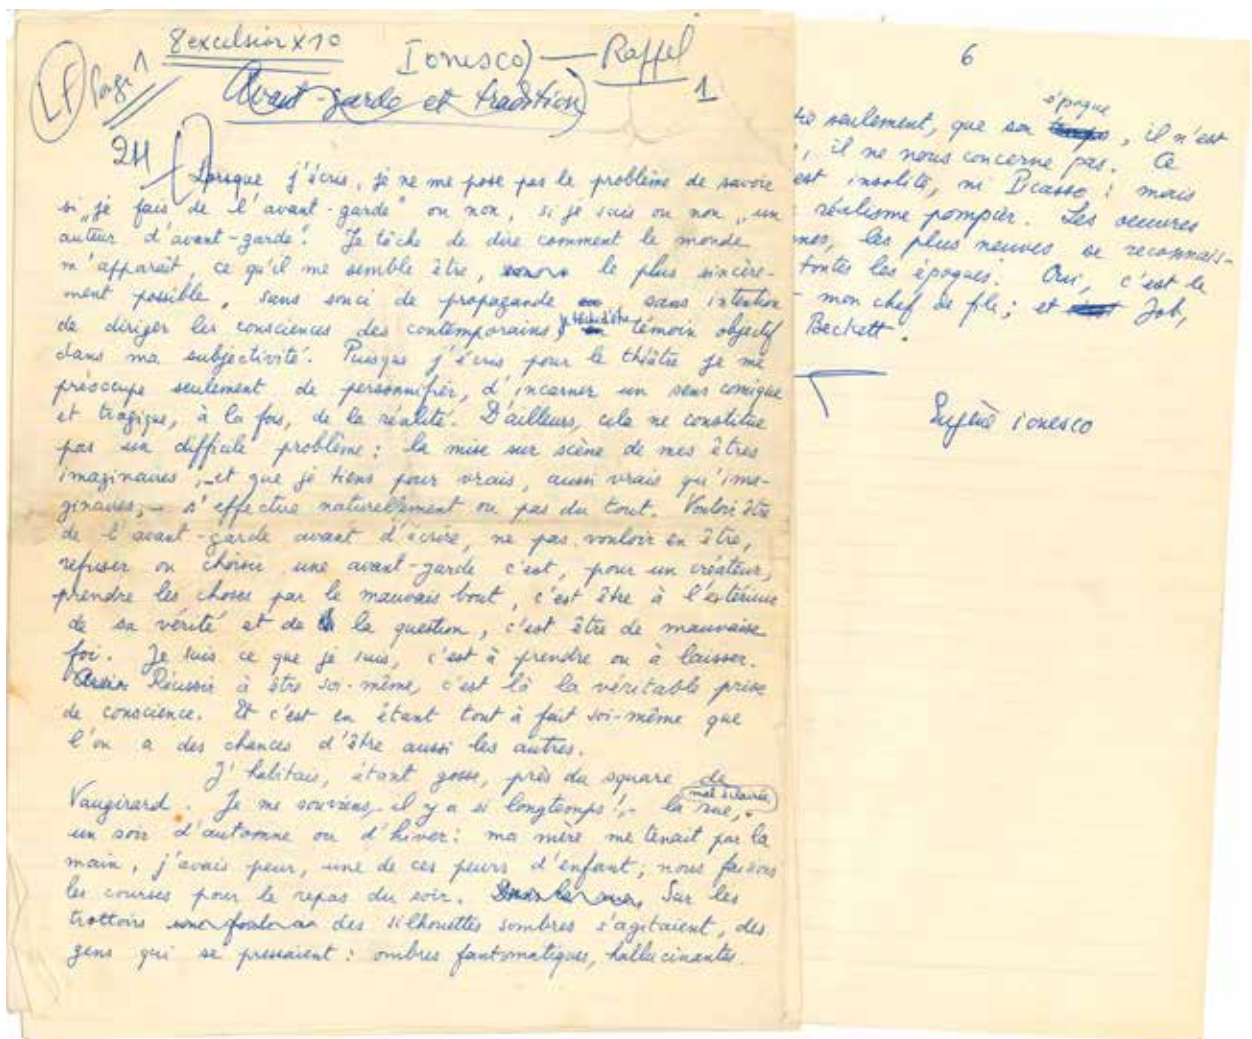 8 excelsior x 10
Ionesco) — Raffel
LF page 1
Avant-garde et tradition)
1
24
Lorsque j'écris, je ne me pose pas le problème de savoir
si „je fais de l'avant-garde" ou non, si je suis ou non „un
auteur d'avant-garde". Je tâche de dire comment le monde
m'apparaît, ce qu'il me semble être, le plus sincère-
ment possible, sans souci de propagande, sans intention
de diriger les consciences des contemporains, témoin objectif
dans ma subjectivité. Puisque j'écris pour le théâtre je me
préoccupe seulement de personnifier, d'incarner un sens comique
et tragique, à la fois, de la réalité. D'ailleurs, cela ne constitue
pas un difficile problème : la mise sur scène de mes êtres
imaginaires, – et que je tiens pour vrais, aussi vrais qu'ima-
ginaires, – s'effectue naturellement ou pas du tout. Vouloir être
de l'avant-garde avant d'écrire, ne pas vouloir en être,
refuser ou choisir une avant-garde c'est, pour un créateur,
prendre les choses par le mauvais bout, c'est être à l'extérieur
de sa vérité et de la question, c'est être de mauvaise
foi. Je suis ce que je suis, c'est à prendre ou à laisser.
Réussir à être soi-même, c'est là la véritable prise
de conscience. Et c'est en étant tout à fait soi-même que
l'on a des chances d'être aussi les autres.
J'habitais, étant gosse, près du square de
Vaugirard. Je me souviens, – il y a si longtemps ! – la rue, mal éclairée,
un soir d'automne ou d'hiver : ma mère me tenait par la
main, j'avais peur, une de ces peurs d'enfant ; nous faisions
les courses pour le repas du soir. Sur les
trottoirs des silhouettes sombres s'agitaient, des
gens qui se pressaient : ombres fantomatiques, hallucinantes.
6
seulement, que son époque, il n'est
, il ne nous concerne pas. Ce
est insolite, ni Picasso ; mais
réalisme pompier. Les oeuvres
les plus neuves se reconnais-
toutes les époques. Oui, c'est le
mon chef de file ; et Job,
Beckett.
Eugène Ionesco